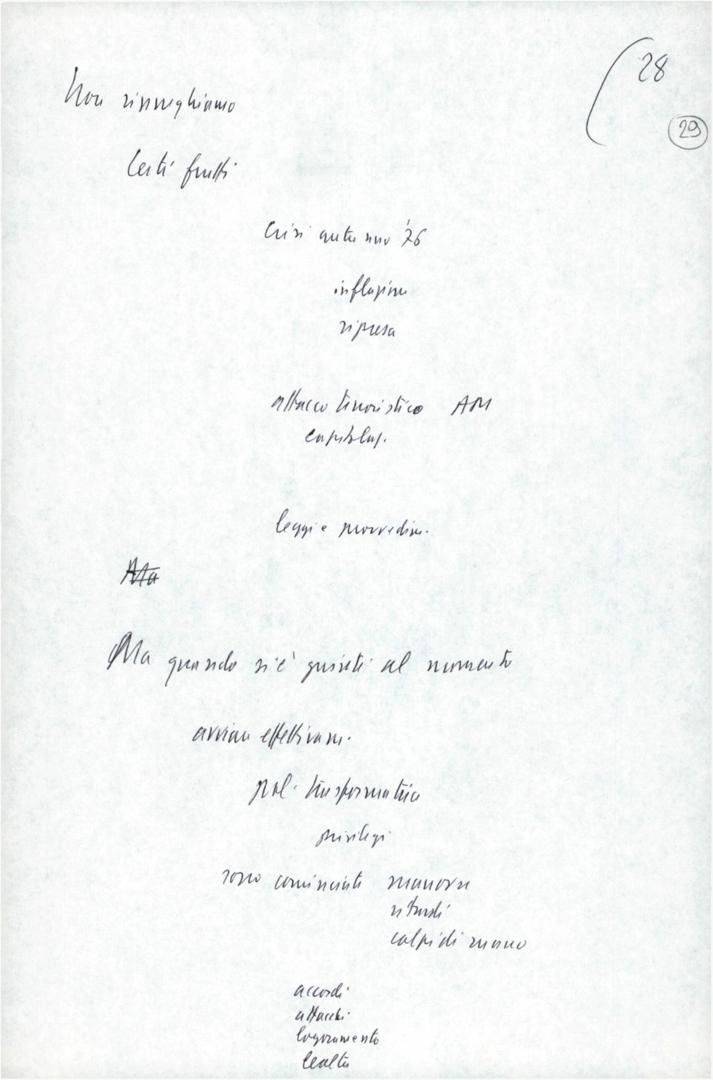 28
29
Non rinneghiamo
Certi frutti
Crisi autunno '76
inflazione
ripresa
attacco terroristico AM
leggi e provvedim.
Ma
Ma quando si è giunti al momento
avviare effettivam.
pol. trasformatrice
privilegi
sono cominciate manovre
ritardi
colpi di mano
accordi
attacchi
logoramento
lealtà